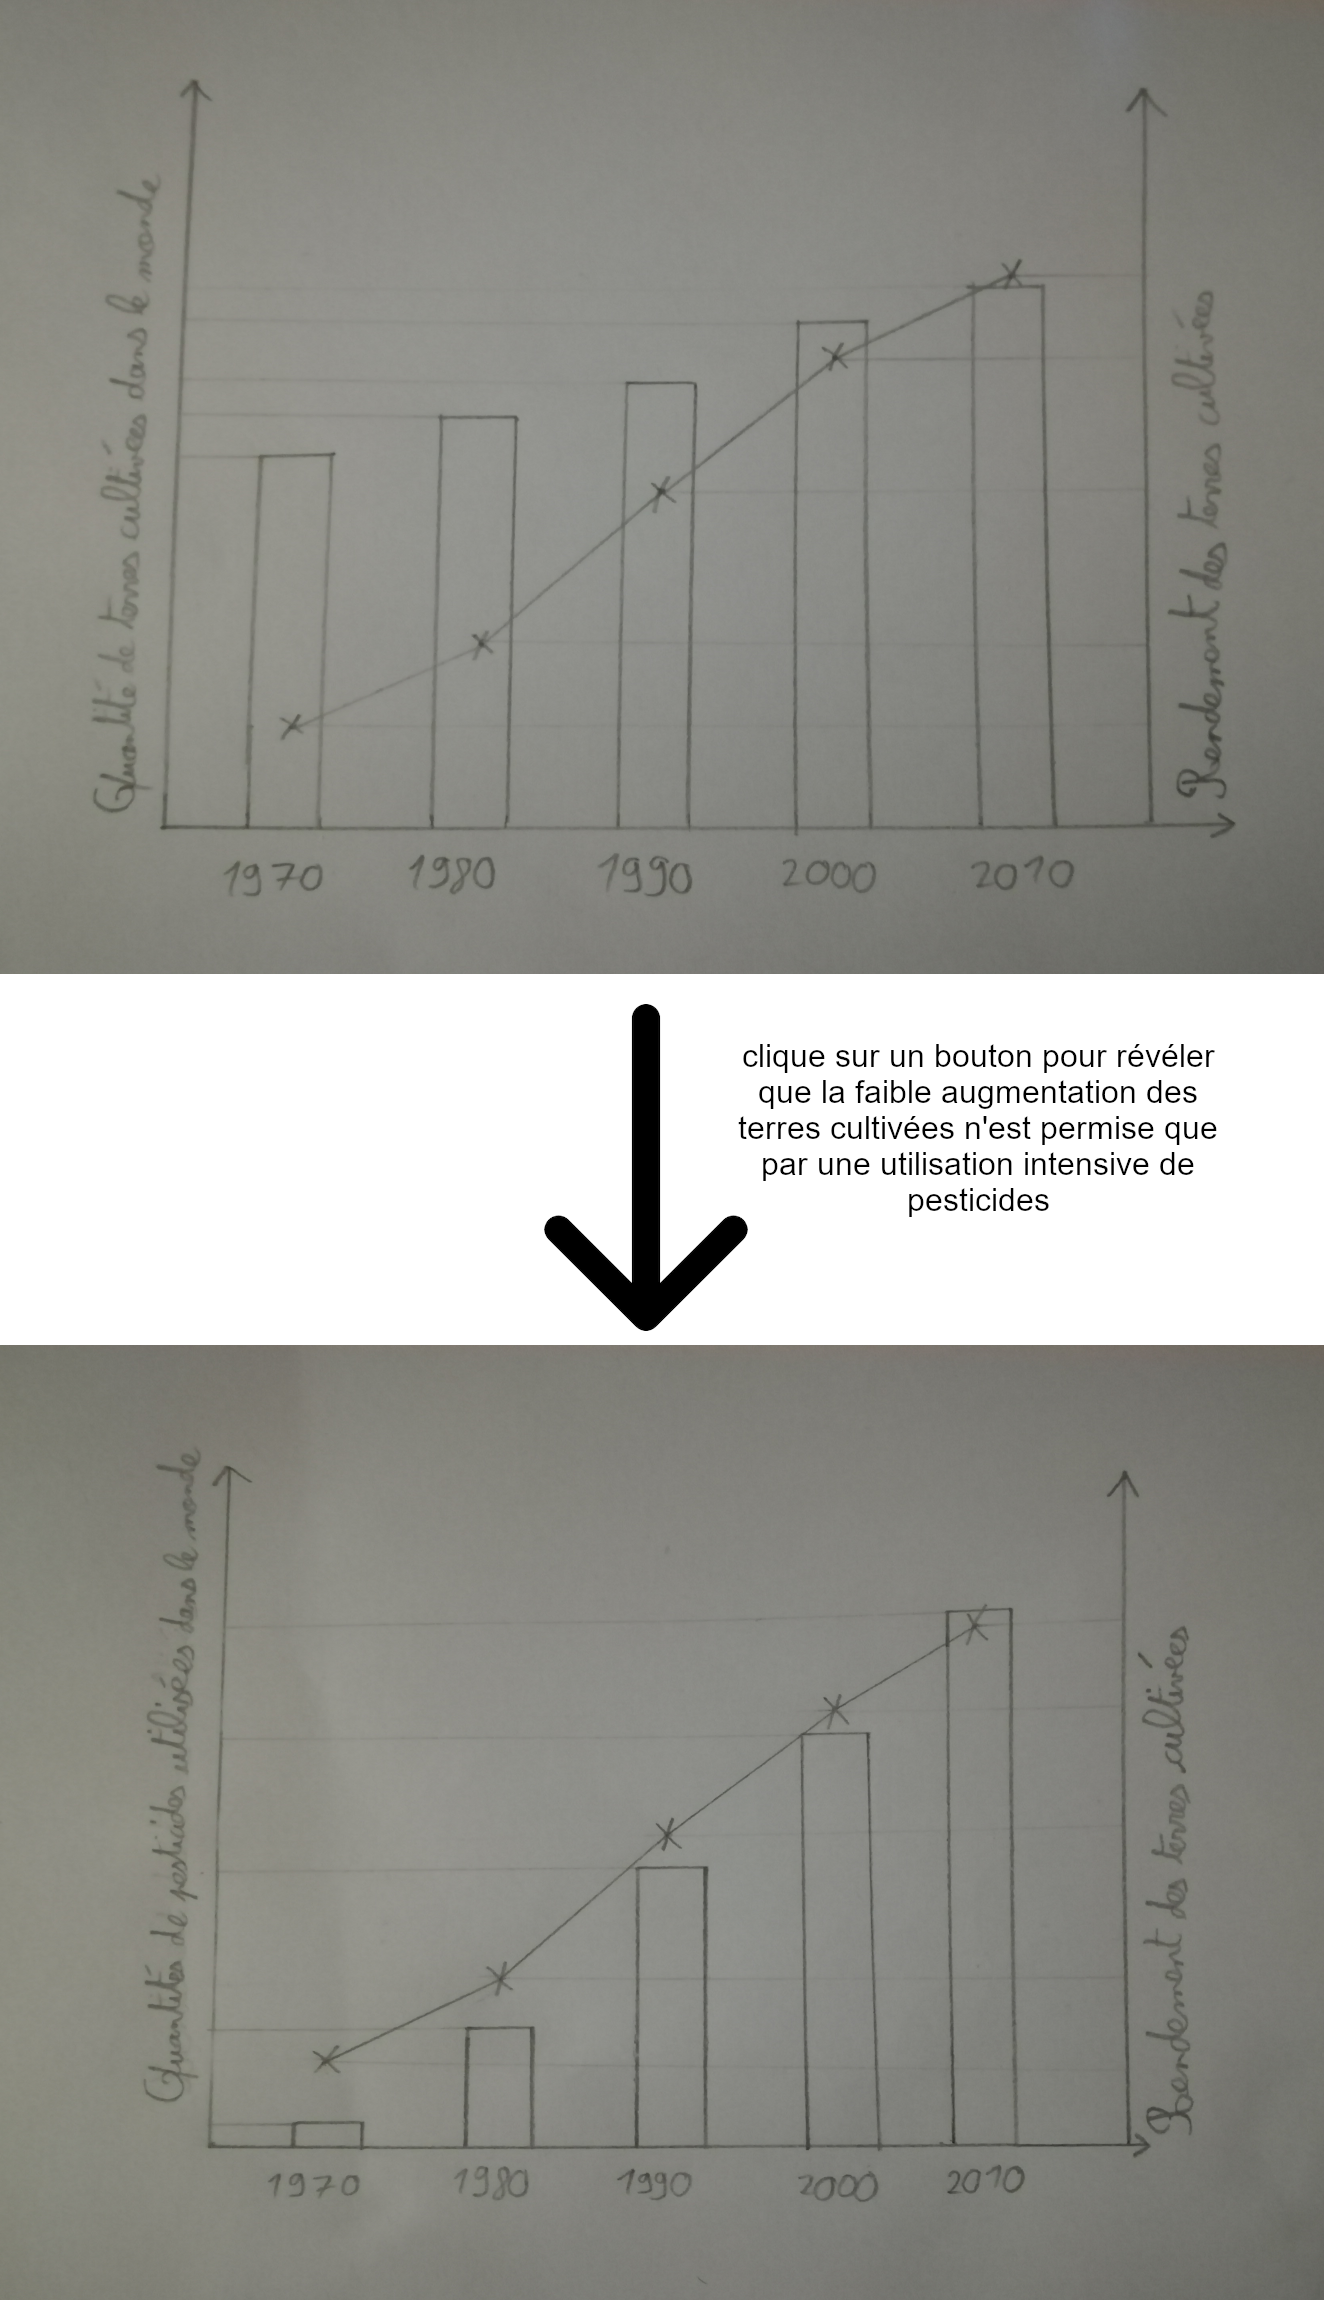 Quantité de terres cultivées dans le monde
Rendement des terres cultivées
1970 1980 1990 2000 2010
clique sur un bouton pour révéler
que la faible augmentation des
terres cultivées n'est permise que
par une utilisation intensive de
pesticides
Quantités de pesticides utilisées dans le monde
Rendement des terres cultivées
1970 1980 1990 2000 2010